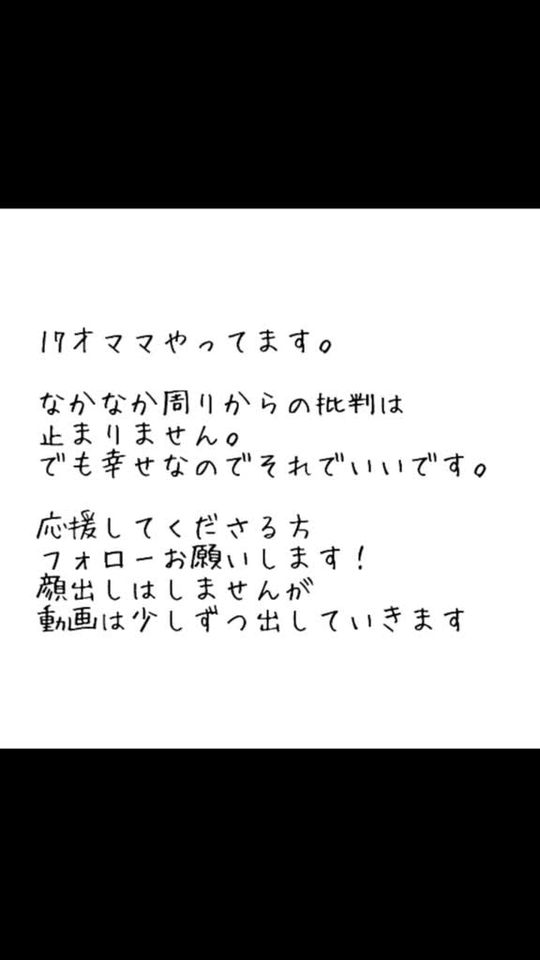 17才ママやってます。
なかなか周りからの批判は
止まりません。
でも幸せなのでそれでいいです。
応援してくださる方
フォローお願いします！
顔出しはしませんが
動画は少しずつ出していきます